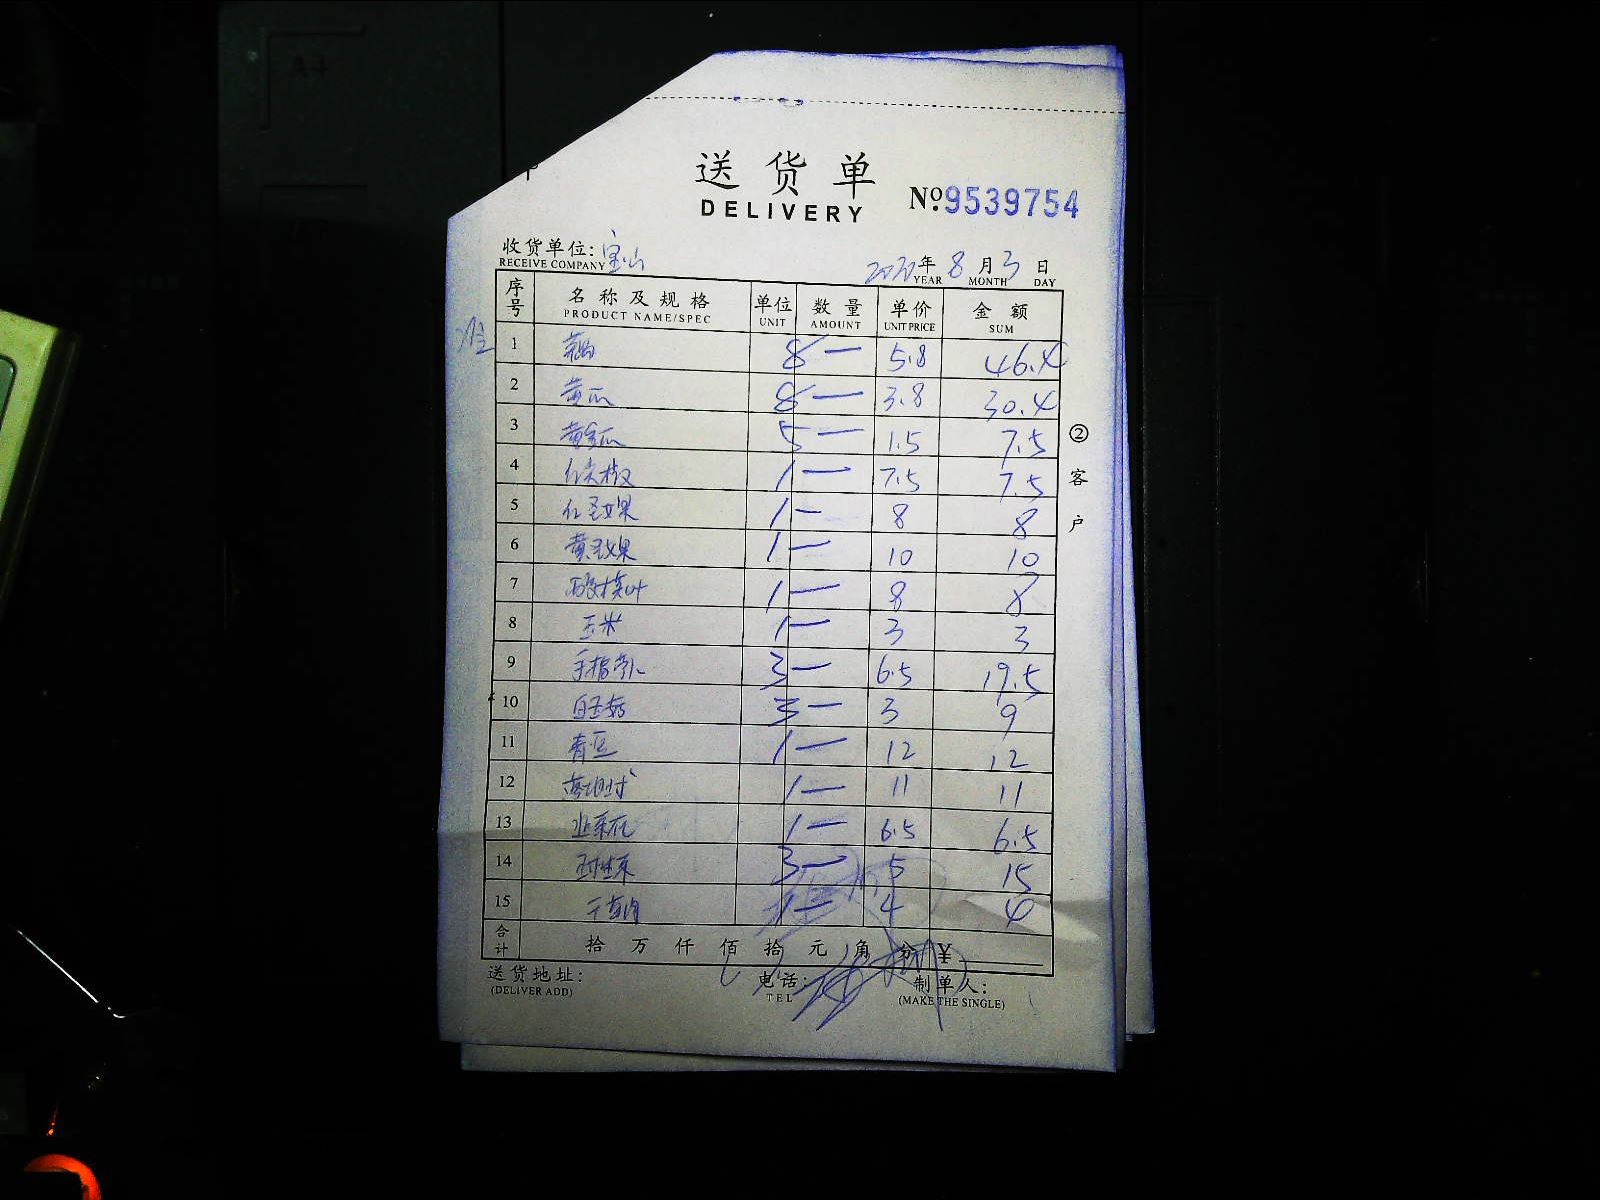 送货单
DELIVERY
№9539754
收货单位: 宝山
RECEIVE COMPANY
2020年 8月 3日
YEAR MONTH DAY
序号 名称及规格 单位 数量 单价 金额
PRODUCT NAME/SPEC UNIT AMOUNT UNIT PRICE SUM
1 8 — 5.8 46.4
2 黄瓜 8 — 3.8 30.4
3 黄金瓜 5 — 1.5 7.5
4 红尖椒 1 — 7.5 7.5
5 红圣女果 1 — 8 8
6 黄圣女果 1 — 10 10
7 1 — 8 8
8 玉米 1 — 3 3
9 手指 3 — 6.5 19.5
10 白玉菇 3 — 3 9
11 青豆 1 — 12 12
12 1 — 11 11
13 1 — 6.5 6.5
14 3 — 5 15
15 1 — 4 4
合计 拾 万 仟 佰 拾 元 角 分 ¥
送货地址: 电话: 制单人:
(DELIVER ADD) TEL (MAKE THE SINGLE)
②客户
A4